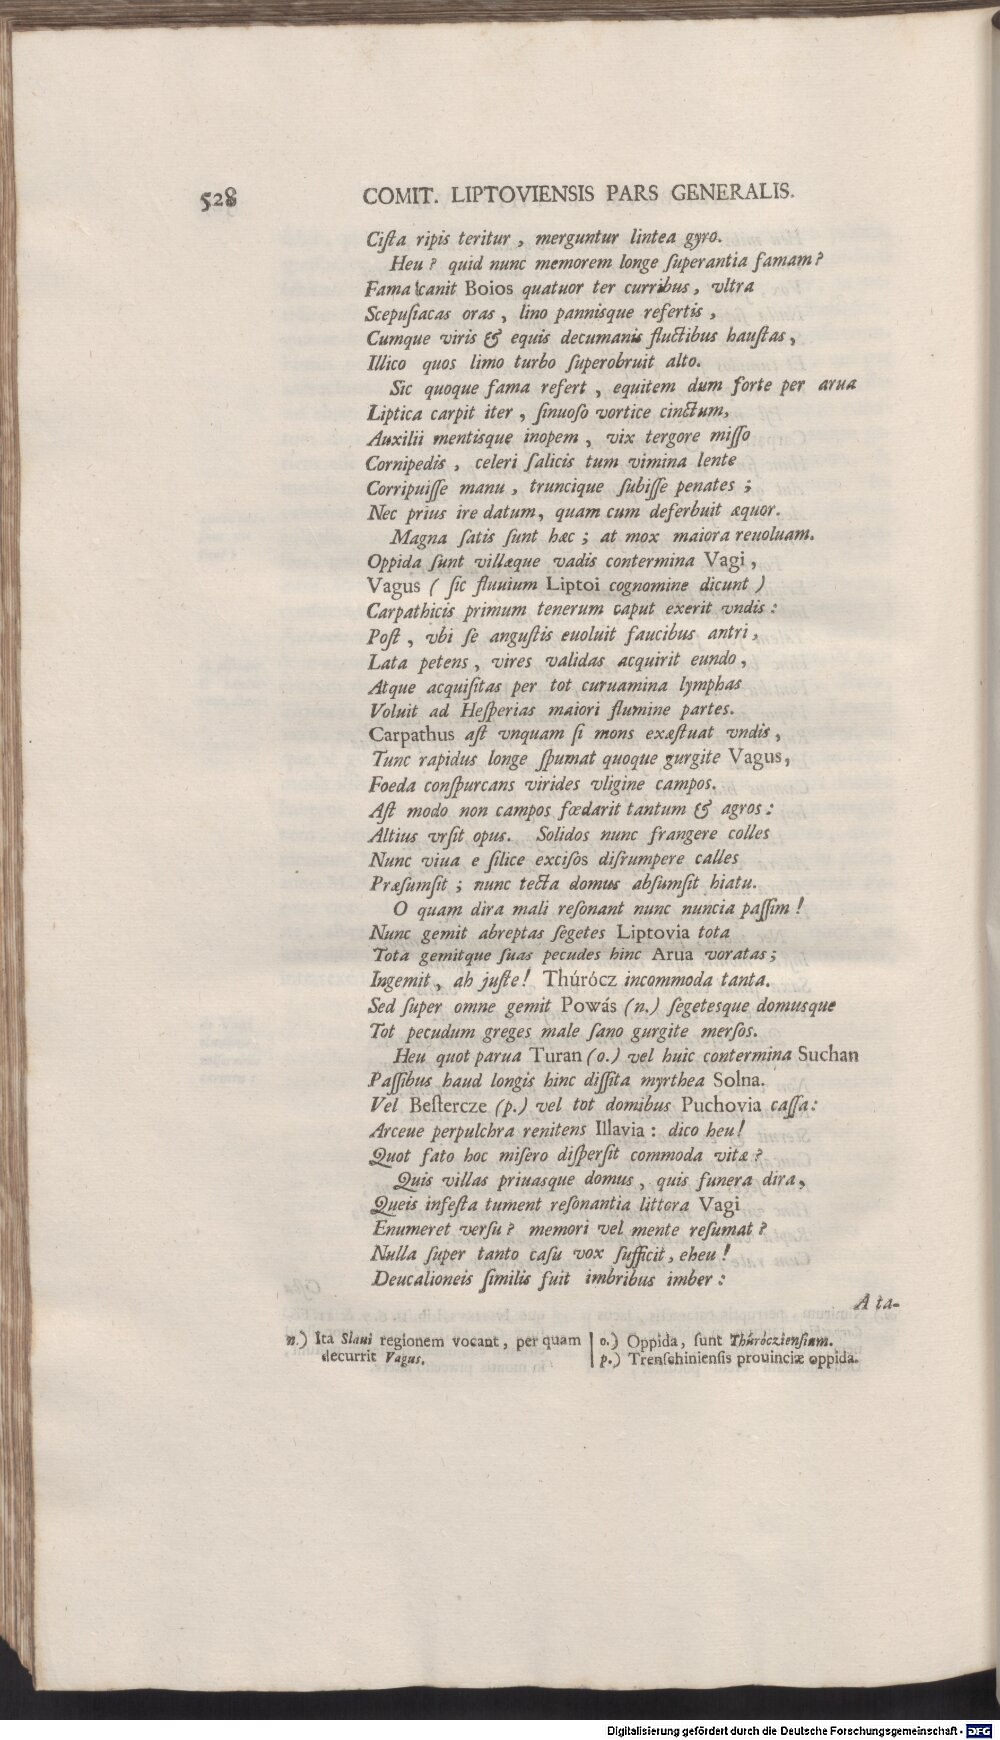 528 COMIT. LIPTOVIENSIS PARS GENERALIS.
Ciſta ripis teritur, merguntur lintea gyro.
Heu? quid nunc memorem longe ſuperantia famam?
Fama canit Boios quatuor ter curribus, vltra
Scepuſiacas oras, lino pannisque refertis,
Cumque viris & equis decumanis fluctibus hauſtas,
Illico quos limo turbo ſuperobruit alto.
Sic quoque fama refert, equitem dum forte per arua
Liptica carpit iter, ſinuoſo vortice cinctum,
Auxilii mentisque inopem, vix tergore miſſo
Cornipedis, celeri ſalicis tum vimina lente
Corripuiſſe manu, truncique ſubiſſe penates;
Nec prius ire datum, quam cum deferbuit æquor.
Magna ſatis ſunt hæc; at mox maiora reuoluam.
Oppida ſunt villæque vadis contermina Vagi,
Vagus (ſic fluuium Liptoi cognomine dicunt)
Carpathicis primum tenerum caput exerit vndis:
Poſt, vbi ſe anguſtis euoluit faucibus antri,
Lata petens, vires validas acquirit eundo,
Atque acquiſitas per tot curuamina lymphas
Voluit ad Heſperias maiori flumine partes.
Carpathus aſt vnquam ſi mons exæſtuat vndis,
Tunc rapidus longe ſpumat quoque gurgite Vagus,
Foeda conſpurcans virides vligine campos.
Aſt modo non campos fœdarit tantum & agros:
Altius vrſit opus. Solidos nunc frangere colles
Nunc viua e ſilice exciſos diſrumpere calles
Præſumſit; nunc tecta domus abſumſit hiatu.
O quam dira mali reſonant nunc nuncia paſſim!
Nunc gemit abreptas ſegetes Liptovia tota
Tota gemitque ſuas pecudes hinc Arua voratas;
Ingemit, ah juſte! Thúrócz incommoda tanta.
Sed ſuper omne gemit Powás (n.) ſegetesque domusque
Tot pecudum greges male ſano gurgite merſos.
Heu quot parua Turan (o.) vel huic contermina Suchan
Paſſibus haud longis hinc diſſita myrthea Solna.
Vel Beſtercze (p.) vel tot domibus Puchovia caſſa:
Arceue perpulchra renitens Illavia: dico heu!
Quot fato hoc miſero diſperſit commoda vitæ?
Quis villas priuasque domus, quis funera dira,
Queis infeſta tument reſonantia littora Vagi
Enumeret verſu? memori vel mente reſumat?
Nulla ſuper tanto caſu vox ſufficit, eheu!
Deucalioneis ſimilis fuit imbribus imber:
A ta-
n.) Ita Slaui regionem vocant, per quam
decurrit Vagus.
o.) Oppida, ſunt Thúrócziensium.
p.) Trenſchiniensis prouinciæ oppida.
Digitalisierung gefördert durch die Deutsche Forschungsgemeinschaft - DFG